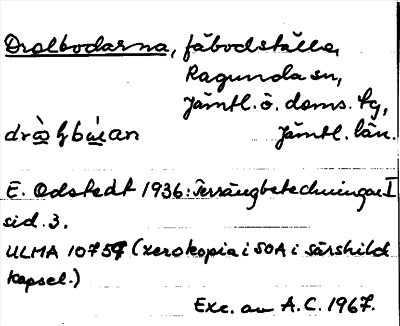 Drolbodarna, fäbodställe,
Ragunda sn,
Jämtl. ö. doms. tg,
Jämtl. län.
E. Odstedt 1936: Terrängbeteckningar I
sid. 3.
ULMA 10759 (xerokopia i SOA i särskild
kapsel.)
Exc. av A.C. 1967.